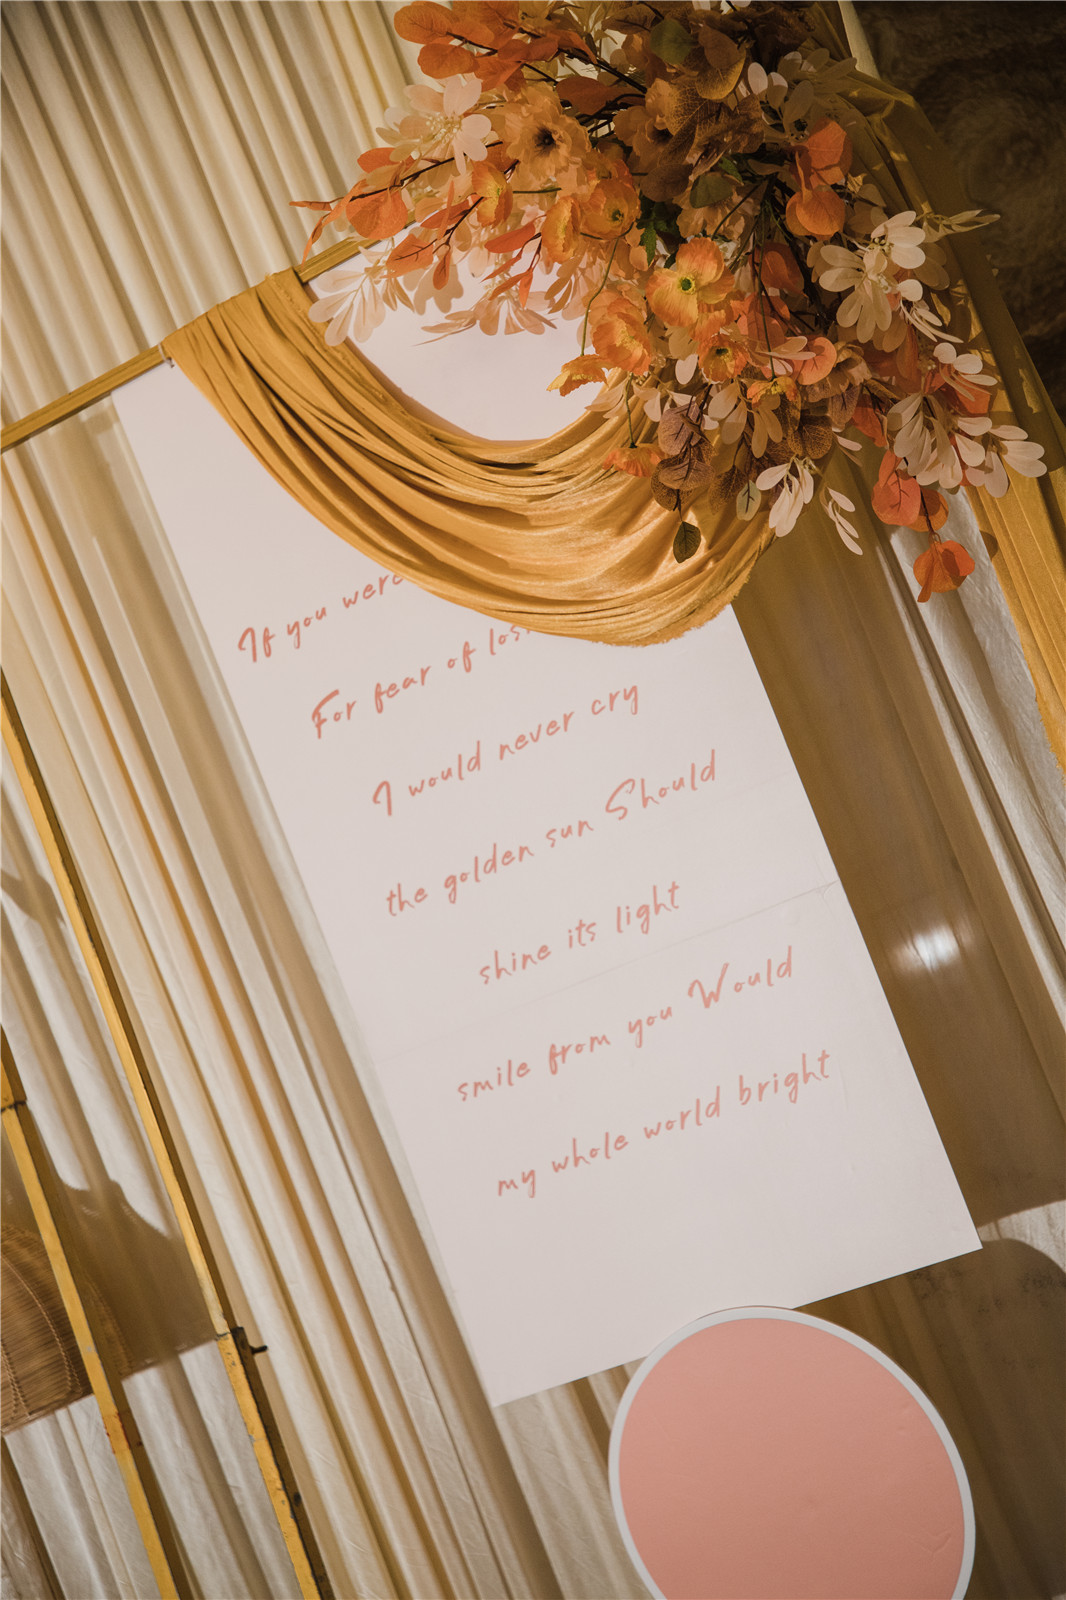 If you were
For fear of
I would never cry
the golden sun Should
shine its light
smile from you Would
my whole world bright